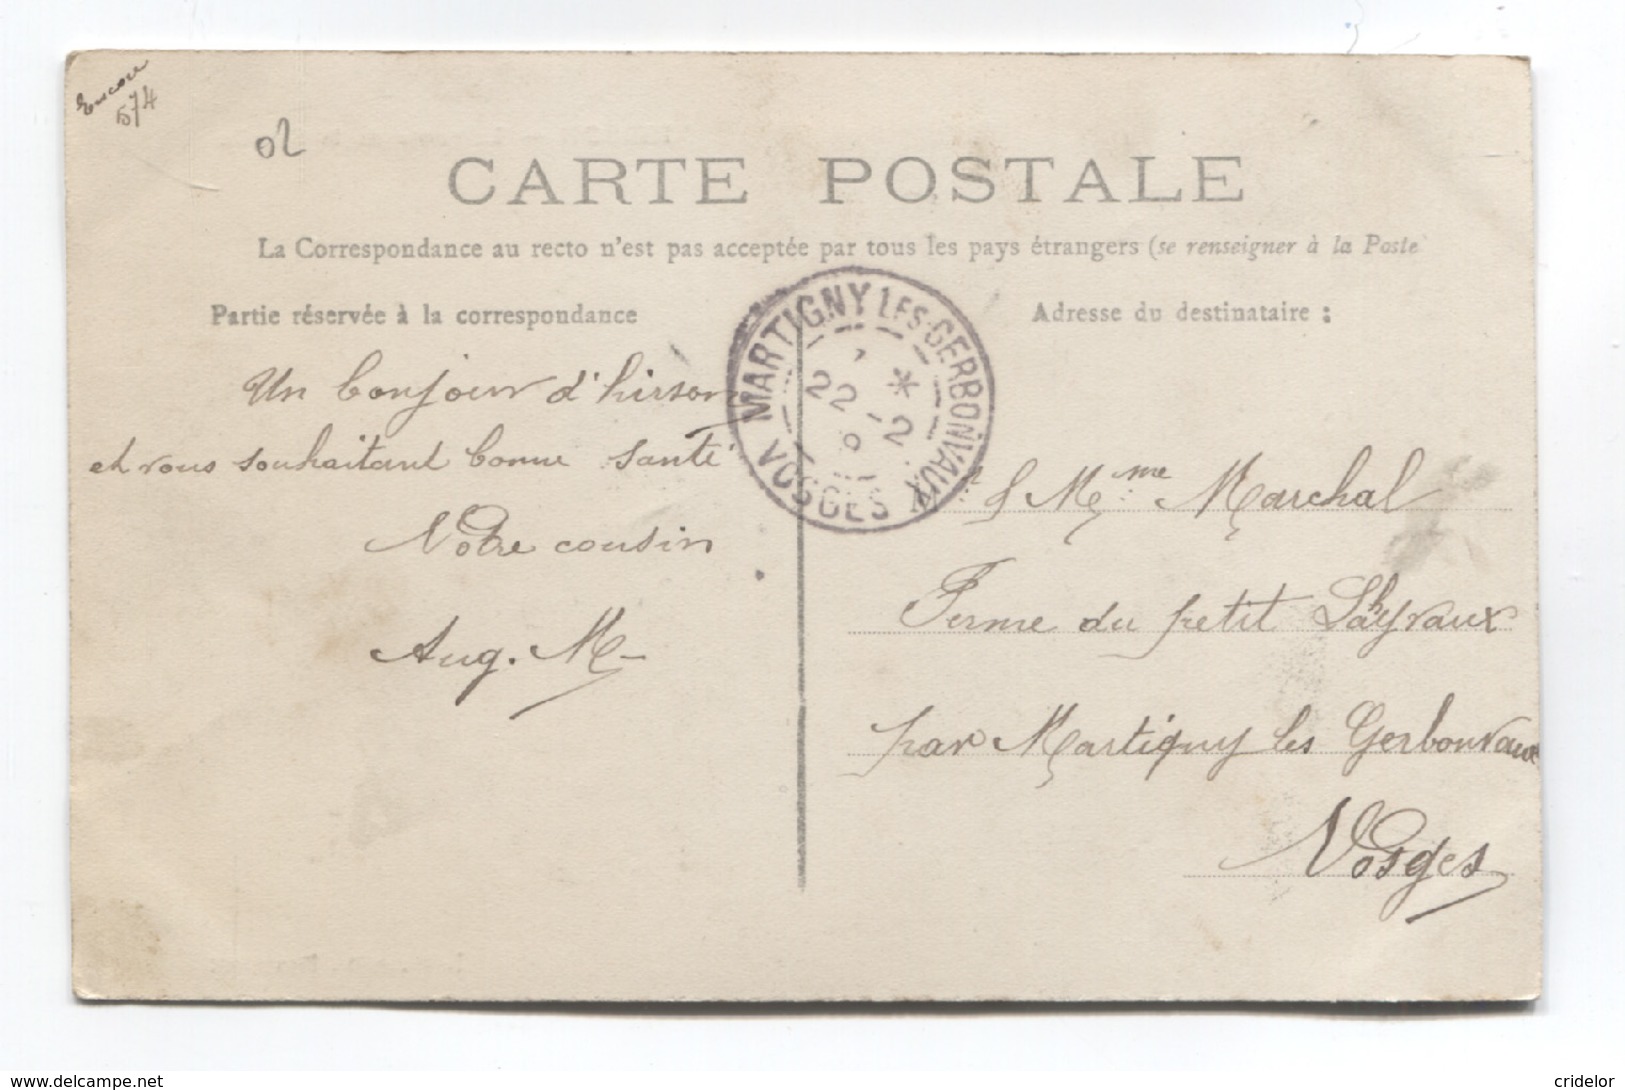 Encore
574
02
CARTE POSTALE
La Correspondance au recto n'est pas acceptée par tous les pays étrangers (se renseigner à la Poste
Partie réservée à la correspondance
Adresse du destinataire :
MARTIGNY LES-GERBONVAUX
22 - 2
VOSGES
Un bonjour d'hirson
et vous souhaitant bonne santé
Votre cousin
Aug. M
Mme Marchal
Ferme du petit
par Martigny les Gerbonvaux
Vosges
www.delcampe.net
cridelor